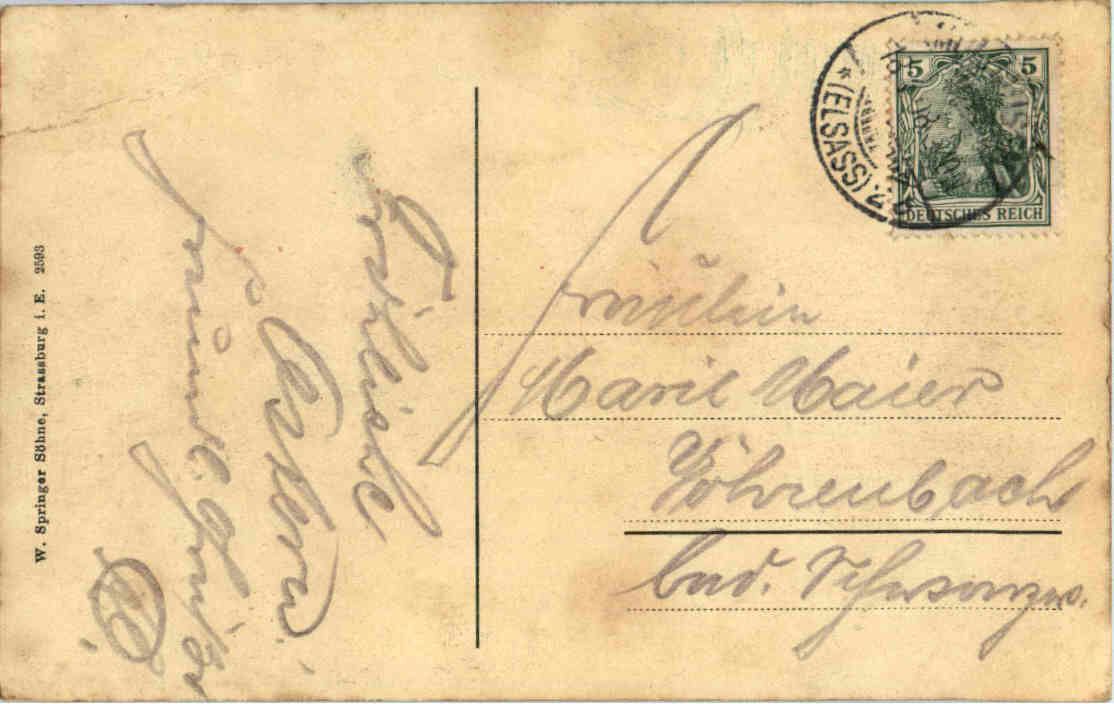 Fröhliche
Ostern!
freundl. Grüße
W. Springer Söhne, Strassburg i. E. 2593
* (ELSASS).
5 5
DEUTSCHES REICH
Fräulein
Marie Maier
Vöhrenbach
bad. Schwarzw.